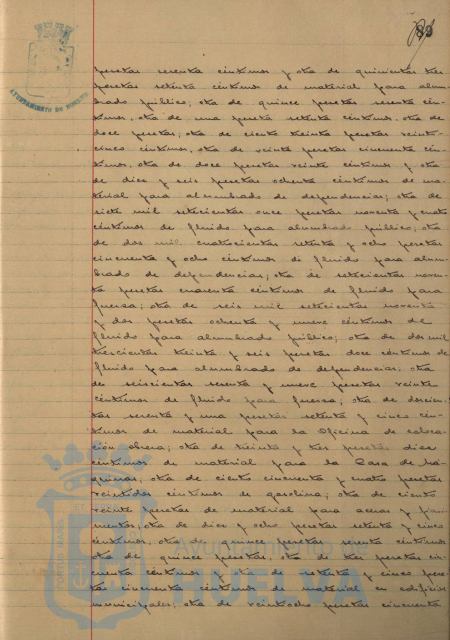 89
AYUNTAMIENTO DE HUELVA
pesetas sesenta céntimos y otra de quinientas tres
pesetas setenta céntimos de material para alum-
brado público; otra de quince pesetas sesenta cén-
timos, otra de una peseta setenta céntimos, otra de
doce pesetas; otra de ciento treinta pesetas veinti-
cinco céntimos, otra de veinte pesetas cincuenta cén-
timos, otra de doce pesetas veinte céntimos y otra
de diez y seis pesetas ochenta céntimos de ma-
terial para alumbrado de dependencias; otra de
siete mil setecientas once pesetas noventa y cuatro
céntimos de fluido para alumbrado público; otra
de dos mil cuatrocientas setenta y ocho pesetas
cincuenta y ocho céntimos de fluido para alum-
brado de dependencias; otra de setecientas noven-
ta pesetas cuarenta céntimos de fluido para
fuerza; otra de seis mil setecientas noventa
y dos pesetas ochenta y nueve céntimos de
fluido para alumbrado público; otra de dos mil
trescientas treinta y seis pesetas doce céntimos de
fluido para alumbrado de dependencias; otra
de seiscientas sesenta y nueve pesetas veinte
céntimos de fluido para fuerza; otra de doscien-
tas sesenta y una pesetas setenta y cinco cén-
timos de material para la Oficina de coloca-
ción obrera; otra de treinta y tres pesetas diez
céntimos de material para la Casa de Má-
quinas; otra de ciento cincuenta y cuatro pesetas
veintidos céntimos de gasolina; otra de ciento
veinte pesetas de material para aceras y pavi-
mentos, otra de diez y ocho pesetas setenta y cinco
céntimos, otra de quince pesetas sesenta céntimos
otra de quince pesetas, otra de tres pesetas cin-
cuenta céntimos y otra de setenta y cinco pese-
tas cincuenta céntimos de material en edificios
municipales; otra de veintiocho pesetas cincuenta
PORTUS MARIS
Ayuntamiento de
HUELVA